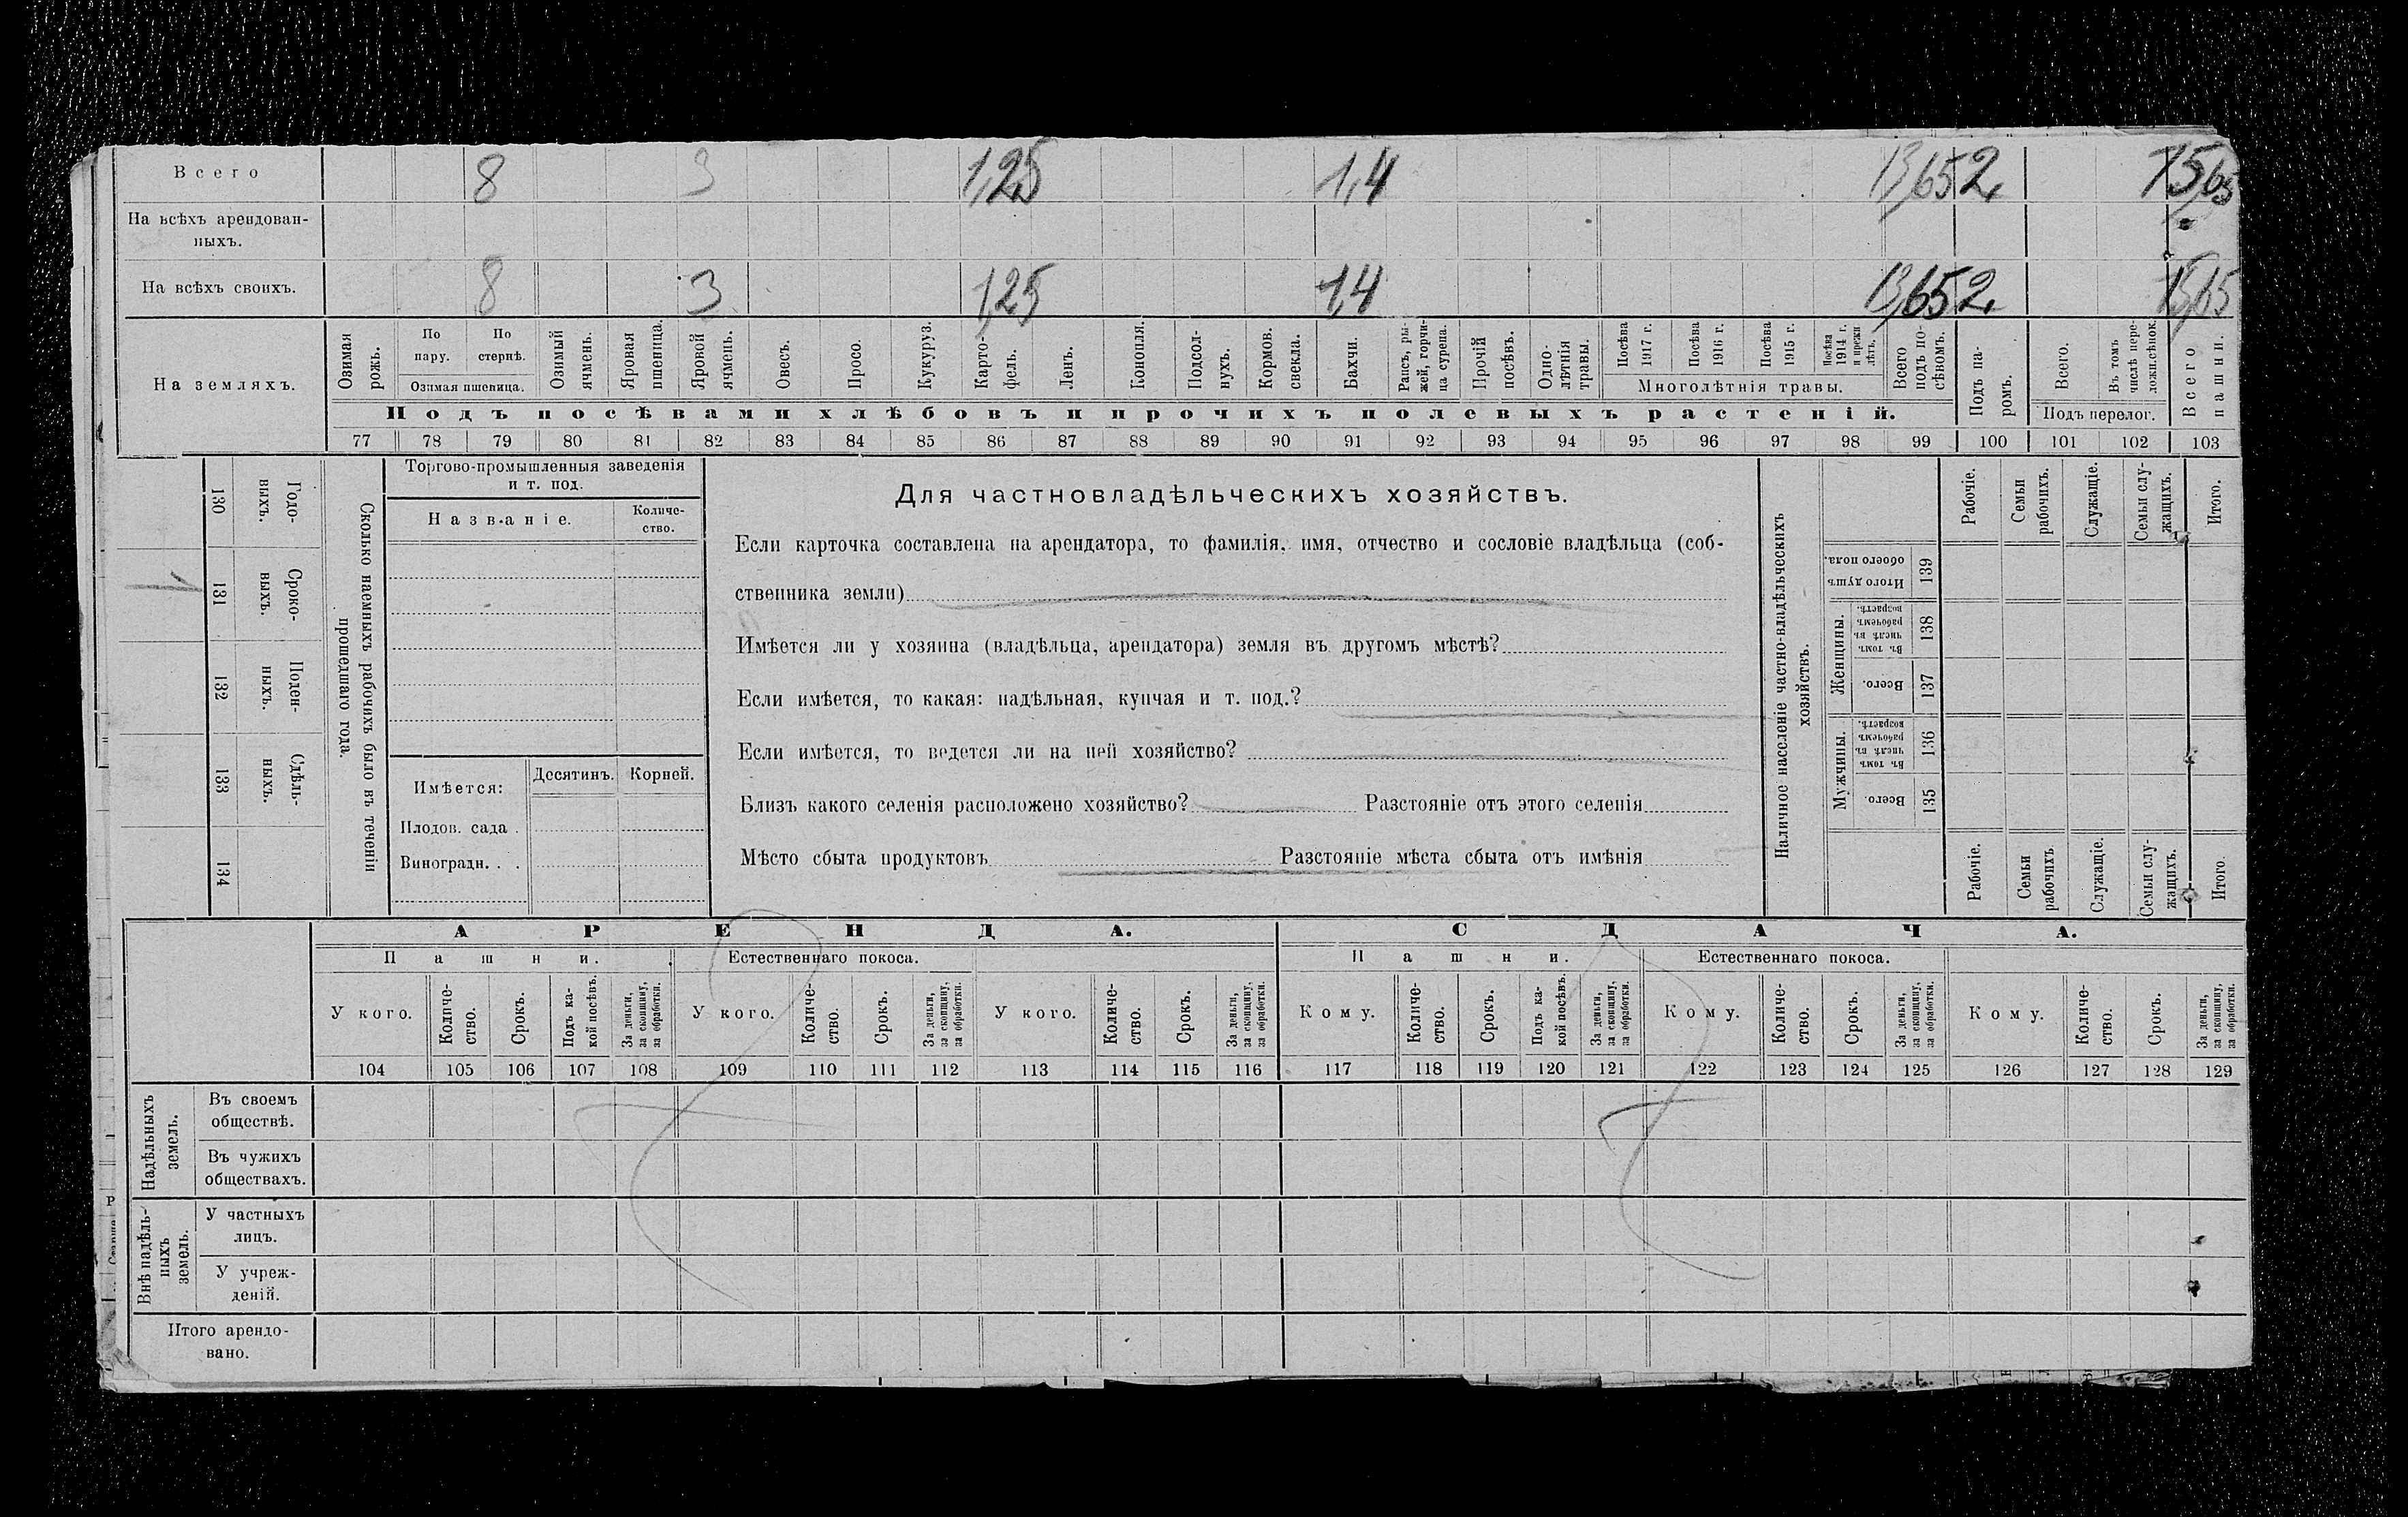 Всего 8 3 1,25 1,4 13,65 2, 15,65
На всѣхъ арендован-
ныхъ.
На всѣхъ своихъ. 8 3 1,25 1,4 13,65 2, 15,65
На земляхъ.
Озимая рожь.
По пару.
По стернѣ.
Озимая пшеница.
Озимый ячмень.
Яровая пшеница.
Яровой ячмень.
Овесъ.
Просо.
Кукуруз.
Карто-
фель.
Ленъ.
Конопля.
Подсол-
нухъ.
Кормов.
свекла.
Бахчи.
Рапсъ, ры-
жей, горчи-
ца сурепа.
Прочій
посѣвъ.
Одно-
лѣтнія
травы.
Посѣва
1917 г.
Посѣва
1916 г.
Посѣва
1915 г.
Посѣва
1914 г.
и прежн
лѣтъ.
Многолѣтнія травы.
Всего
подъ по-
сѣвомъ.
Подъ посѣвами хлѣбовъ и прочихъ полевыхъ растеній.
Подъ па-
ромъ.
Всего.
Въ томъ
числѣ пере-
ложн.сѣнок.
Подъ перелог.
Всего
пашни.
77 78 79 80 81 82 83 84 85 86 87 88 89 90 91 92 93 94 95 96 97 98 99 100 101 102 103
Сколько наемныхъ рабочихъ было въ теченіи
прошедшаго года.
Годо-
выхъ.
130
Сроко-
выхъ.
131
Поден-
ныхъ.
132
Сдѣль-
ныхъ.
133
134
Торгово-промышленныя заведенія
и т. под.
Названіе.
Количе-
ство.
Имѣется:
Десятинъ.
Корней.
Плодов. сада .
Виноградн. . .
Для частновладѣльческихъ хозяйствъ.
Если карточка составлена на арендатора, то фамилія, имя, отчество и сословіе владѣльца (соб-
ственника земли)
Имѣется ли у хозяина (владѣльца, арендатора) земля въ другомъ мѣстѣ?
Если имѣется, то какая: надѣльная, купчая и т. под.?
Если имѣется, то ведется ли на ней хозяйство?
Близъ какого селенія расположено хозяйство? Разстояніе отъ этого селенія
Мѣсто сбыта продуктовъ Разстояніе мѣста сбыта отъ имѣнія
Наличное населеніе частно-владѣльческихъ
хозяйствъ.
Рабочіе.
Семьи
рабочихъ.
Служащіе.
Семьи слу-
жащихъ.
Итого.
Итого душъ
обоего пола.
139
Женщины.
Въ томъ
числѣ въ
рабочемъ
возрастѣ.
138
Всего.
137
Мужчины.
Въ томъ
числѣ въ
рабочемъ
возрастѣ.
136
Всего.
135
Рабочіе.
Семьи
рабочихъ
Служащіе.
Семьи слу-
жащихъ.
Итого.
АРЕНДА.
СДАЧА.
Пашни.
Естественнаго покоса.
Пашни.
Естественнаго покоса.
У кого.
Количе-
ство.
Срокъ.
Подъ ка-
кой посѣвъ.
За деньги,
за скопщину,
за обработки.
У кого.
Количе-
ство.
Срокъ.
За деньги,
за скопщину,
за обработки.
У кого.
Количе-
ство.
Срокъ.
За деньги,
за скопщину,
за обработки.
Кому.
Количе-
ство.
Срокъ.
Подъ ка-
кой посѣвъ.
За деньги,
за скопщину,
за обработки.
Кому.
Количе-
ство.
Срокъ.
За деньги,
за скопщину,
за обработки.
Кому.
Количе-
ство.
Срокъ.
За деньги,
за скопщину,
за обработки.
104 105 106 107 108 109 110 111 112 113 114 115 116 117 118 119 120 121 122 123 124 125 126 127 128 129
Надѣльныхъ
земель.
Въ своемъ
обществѣ.
Въ чужихъ
обществахъ.
Внѣ надѣль-
ныхъ
земель.
У частныхъ
лицъ.
У учреж-
деній.
Итого арендо-
вано.